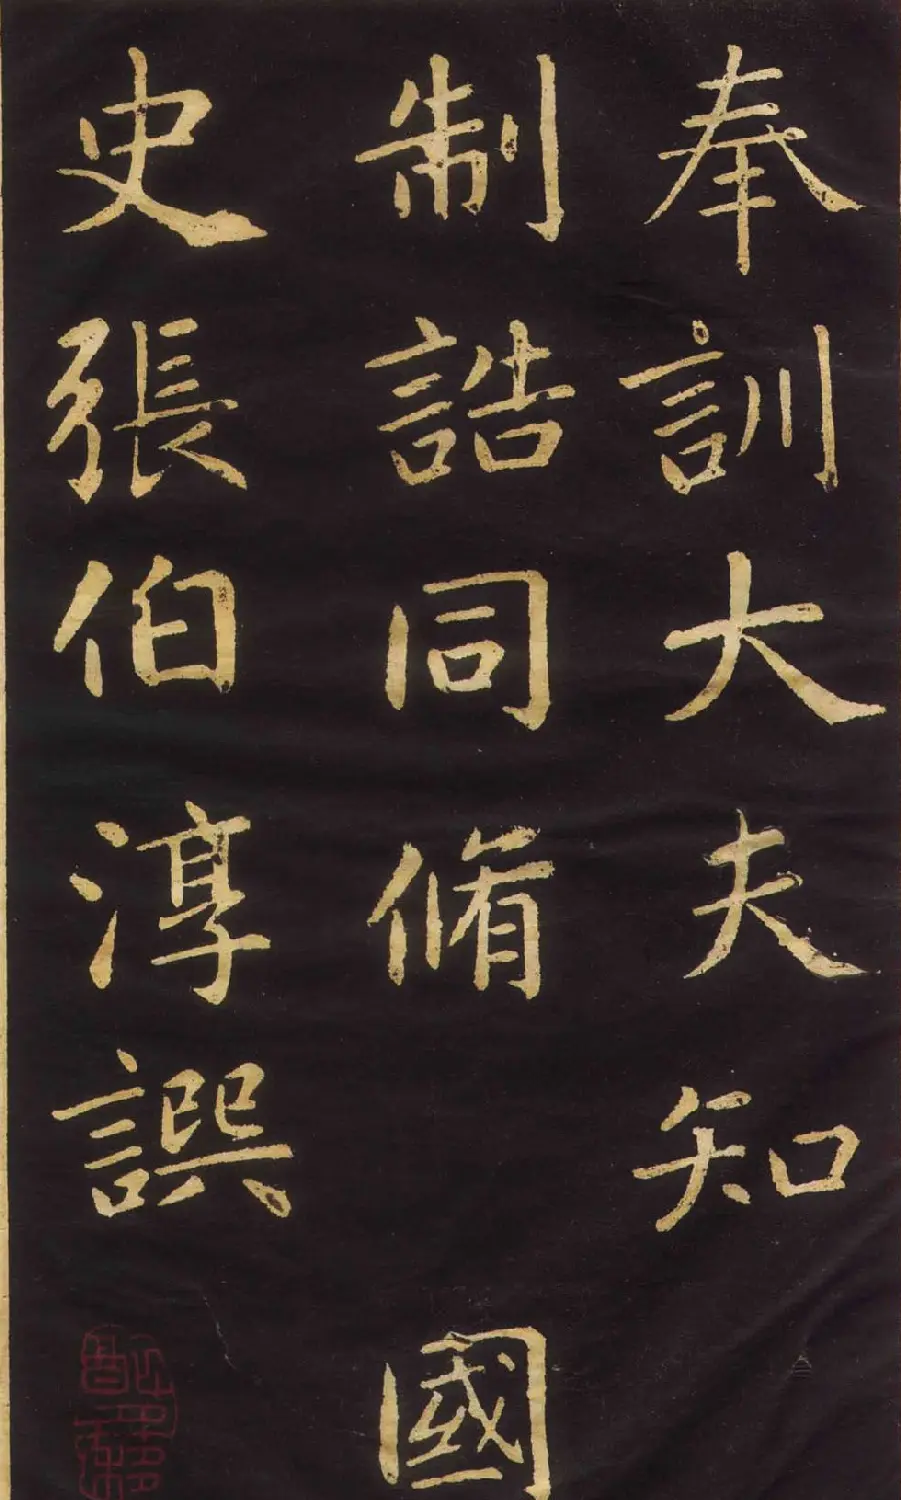 奉訓大夫知
制誥同脩國
史張伯淳譔